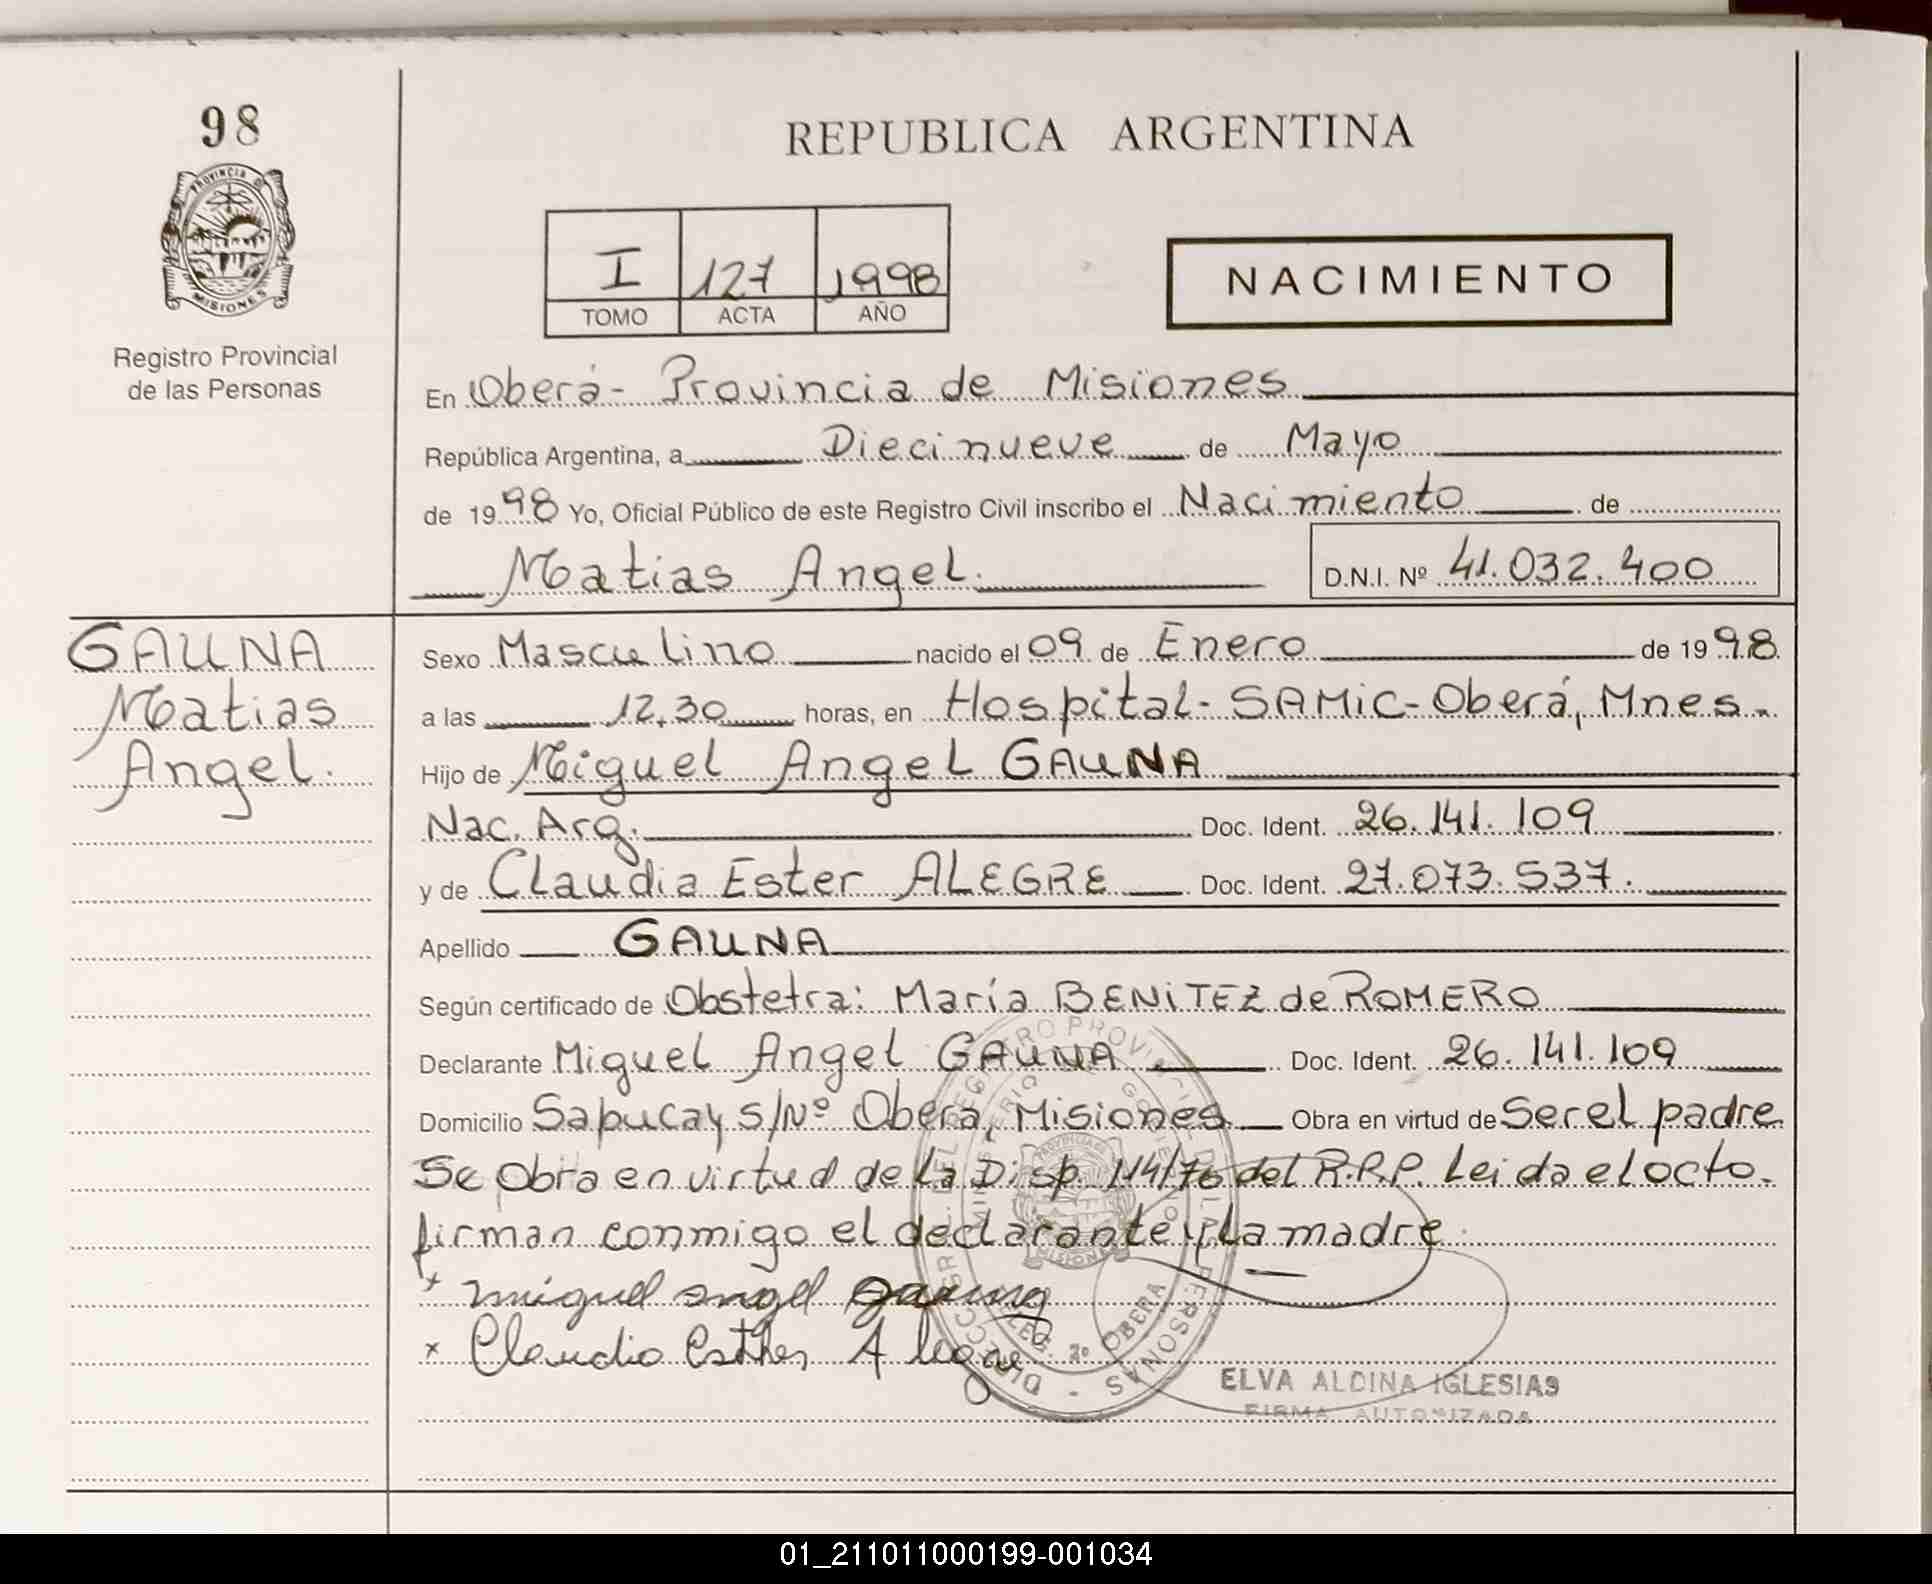 98
PROVINCIA D
MISIONES
Registro Provincial
de las Personas
GAUNA
Matias
Angel.
REPUBLICA ARGENTINA
I 127 1998
TOMO ACTA AÑO
NACIMIENTO
En Oberá - Provincia de Misiones
República Argentina, a Diecinueve de Mayo
de 1998 Yo, Oficial Público de este Registro Civil inscribo el Nacimiento de
Matias Angel. D.N.I. Nº 41.032.400
Sexo Masculino nacido el 09 de Enero de 1998
a las 12,30 horas, en Hospital - SAMIC - Oberá, Mnes.
Hijo de Miguel Angel GAUNA
Nac. Arg. Doc. Ident. 26.141.109
y de Claudia Ester ALEGRE Doc. Ident. 27.073.537.
Apellido GAUNA
Según certificado de Obstetra: María BENITEZ de ROMERO
Declarante Miguel Angel GAUNA Doc. Ident. 26.141.109
Domicilio Sapucay s/Nº Oberá, Misiones Obra en virtud de Ser el padre
Se obra en virtud de la Disp. 114/76 del R.R.P. Leida el acto.
firman conmigo el declarante y la madre.
x miguel angel gauna
x Claudia Esther Alegre
OBERA
ELVA ALCINA IGLESIAS
FIRMA AUTORIZADA
01_211011000199-001034